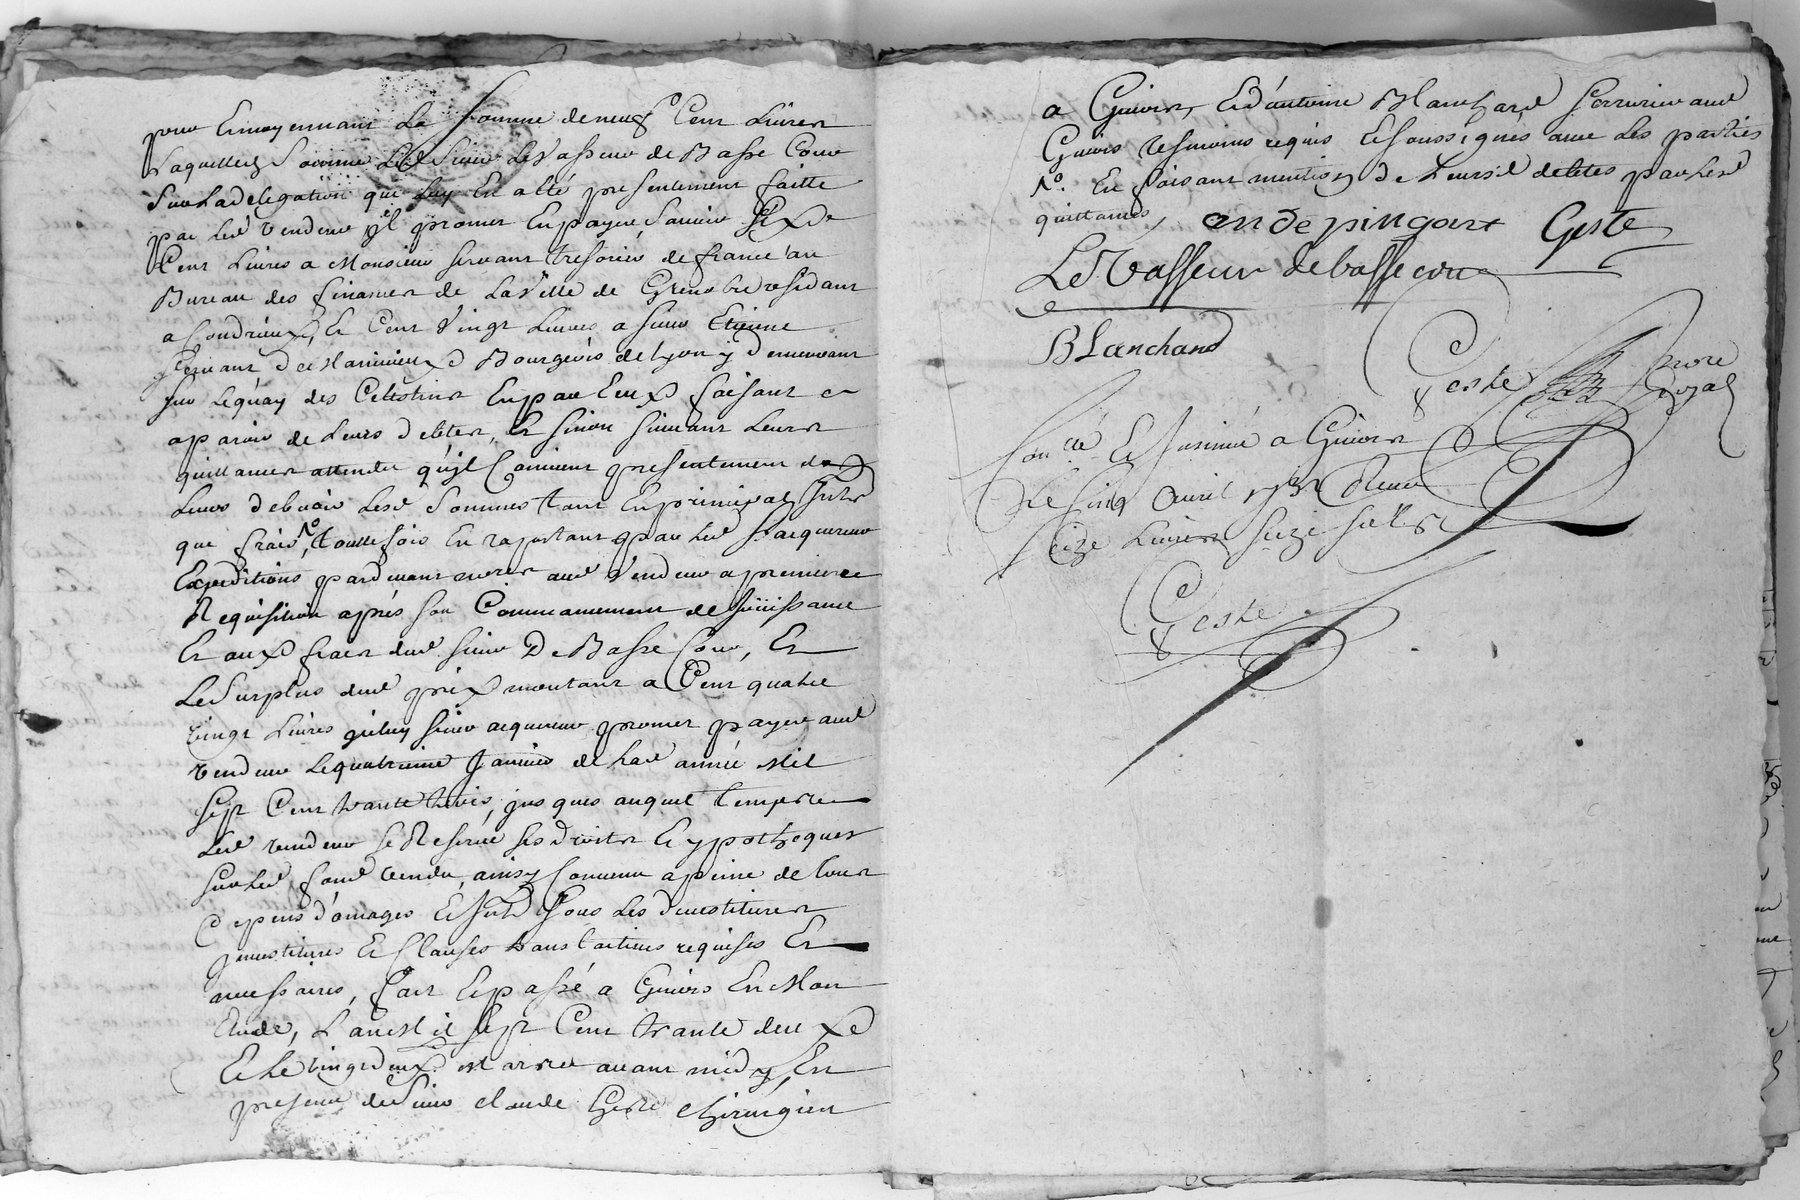 pour Et moyennant La somme de neuf Cent Livres
Laquelle somme Led Sieur Levasseur de Basse Cour
Sur La delegation qui luy En a Eté presentement faitte
par Led vendeur il promet En payer, scavoir six
Cent Livres a Monsieur servant tresorier de france au
Bureau des finances de La Ville de Grenoble residant
a Condrieux, Et Cent vingt Livres a sieur Etienne
servant de Bourgeois de Lyon y demeurant
sur Le quay des Celestins En par Eux faisant
aparoir de Leurs debtes, Et sinon suivant Leurs
quittances attendu qu'il Convient presentement
Leurs debvoir Lesd sommes tant En principal Intrts
que frais, touttefois En raportant par Led sr acquereur
Expeditions pardevant aud vendeur a premiere
Requisition aprés son Commancement de Joüissance
Et aux frais dud sieur De Basse Cour, Et
Le Surplus dud prix montant a Cent quatre
vingt Livres sieur acquereur promet payer aud
vendeur Le quatrieme Janvier de Lad année Mil
sept Cent trante trois, jusques auquel temps
Led vendeur se Reserve ses droits Et ypotheques
sur Led fond vendu, ainsy Convenu a peine de tous
depens d'omages Et Intrts sous Les devestitures
jnvestitures Et Clauses translatives requises Et
necessaires, fait Et passé a Givors En Mon
Etude, L'an Mil sept Cent trante deuxe
Et Le vingt deux mars avant midy, En
presence de Sieur Claude Geste chirurgien
a Givors, Et d'antoine Blanchard serrurier aud
Givors tesmoins requis Et soussignés avec Les parties
No. En faisant mention de Leursd debtes par Lesd
quittances, andepingont Geste
Le Vasseur de basse cour
Blanchand
Geste nore royal
Conllé Et Insinué a Givors
Le cinq avril 1732 Receu
seize Livres seize sols
Geste